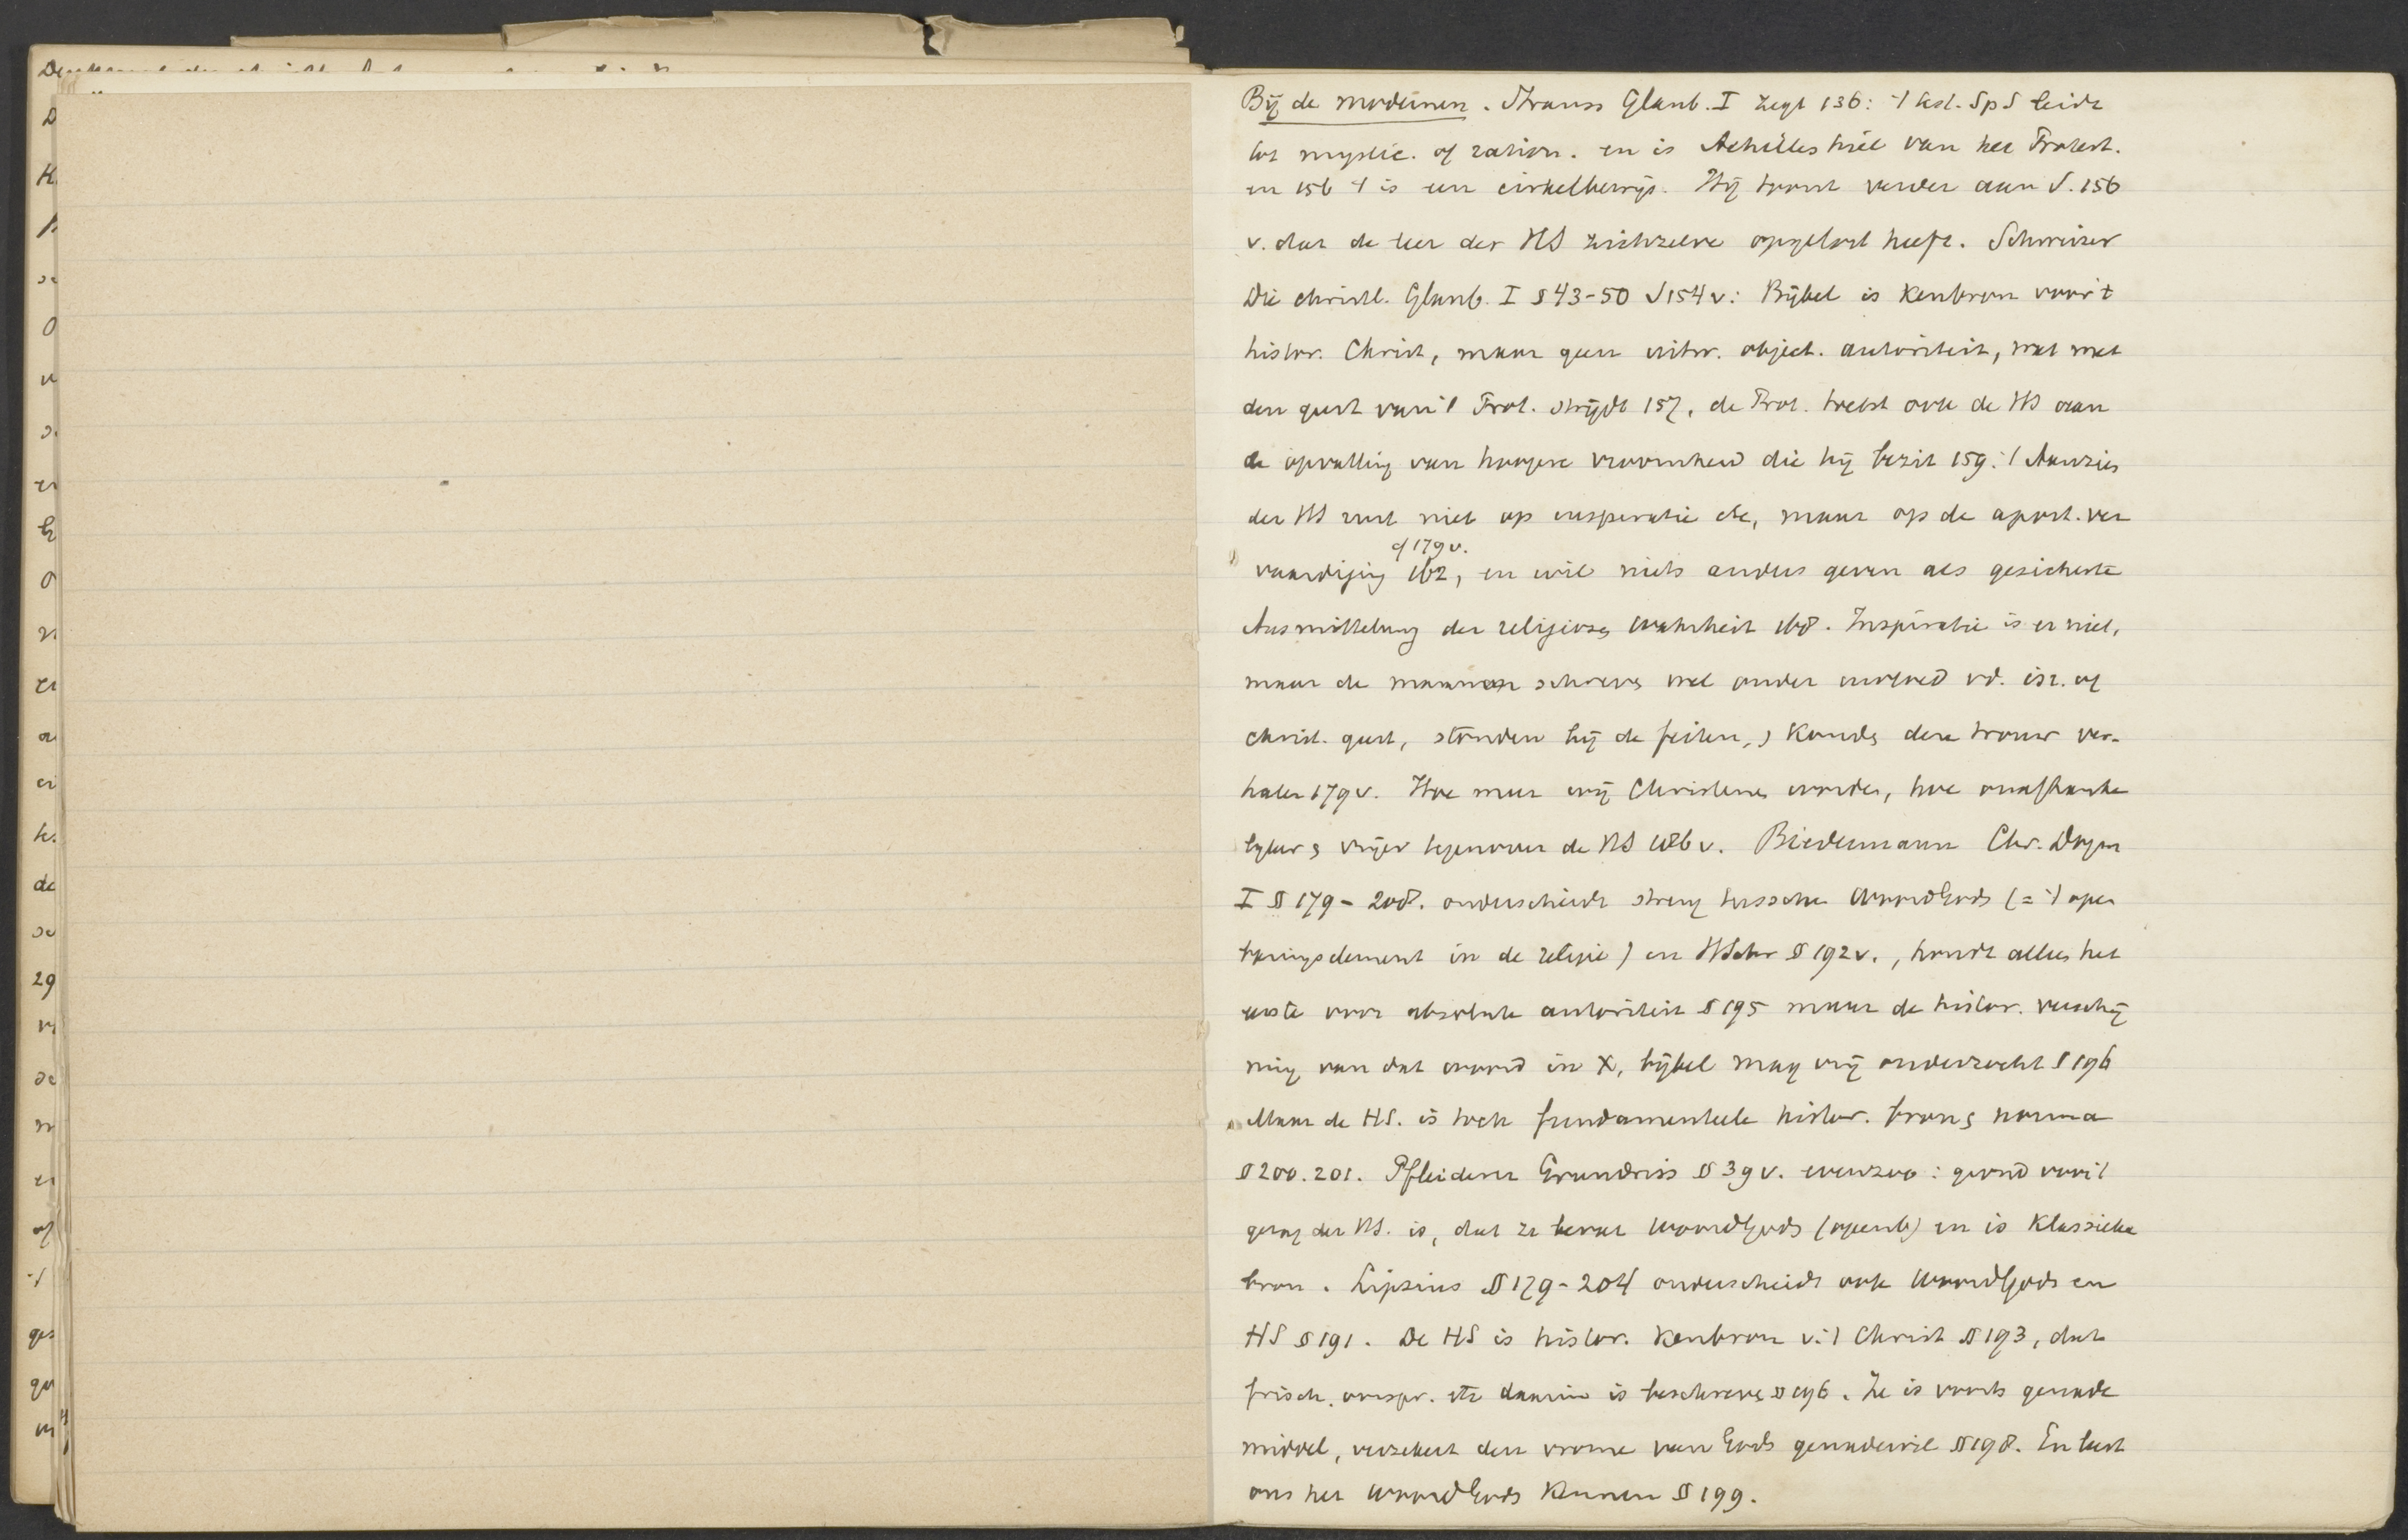 Bij de modernen. Strauss Glaub. I zegt 136: 't test. Sp S leidt
tot mystic. of ration. en is Achilles hiel van het Protest.
en 156 't is een cirkelbewijs. Hij toont verder aan S. 156
v. dat de leer der HS zichzelve opgelost heeft. Schweizer
Die christl. Glaub. I § 43-50 S 154 v: Bijbel is Kenbron voor 't
histor. Christ, maar geen uitw. object. autoriteit, wat met
den geest van 't Prot. strijdt 157, de Prot. trekt ook de HS aan
de opvatting van hoogere vroomheid die hij bezit 159. 't Aanzien
der HS rust niet op inspiratie etc, maar op de apost. ver
cf 179 v.
vaardiging 162, en wil niets anders geven als gesicherte
Ausmittelung der religiosen Wahrheit 168. Inspiratie is er niet,
maar de mannen schreven wel onder invloed vd. isr. of
christ. geest, stonden bij de feiten, en konden deze trouw ver-
halen 179 v. Hoe meer wij Christenen worden, hoe onafhanke
lyker en vrijer tegenover de HS 186 v. Biedermann Chr. Dogm
I § 179 - 208. onderscheidt streng tusschen Woord Gods (= 't open
baringselement in de religie) en HSchr § 192 v., houdt alleen het
eerste voor absolute autoriteit § 195 maar de histor. verschij
ning van dat woord in X, bijbel mag vrij onderzocht § 196
Maar de HS. is toch fundamenteele histor. bron en norma
§ 200. 201. Pfleiderer Grundriss § 39 v. evenzoo: grond voor 't
gezag der HS. is, dat ze bevat Woord Gods (openb) en is Klassieke
bron. Lipsius § 179 - 204 onderscheidt ook Woord Gods en
HS § 191. De HS is histor. Kenbron v. 't Christ § 193, dat
frisch. oorspr. etc daarin is beschreven § 196. Ze is voorts genade
middel, verzekert den vrome van Gods genadewil § 198. En leert
ons het Woord Gods kennen § 199.